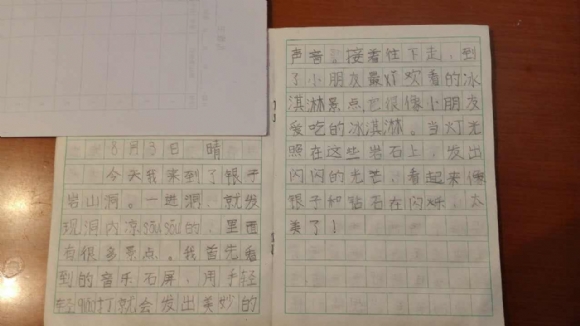 8月3日 晴
今天我来到了银子
岩山洞。一进洞,就发
现洞内凉sōusōu的,里面
有很多景点。我首先看
到的音乐石屏,用手轻
轻打就会发出美妙的
声音,接着往下走,到
了小朋友最喜欢看的冰
淇淋景点它很像小朋友
爱吃的冰淇淋。当灯光
照在这些岩石上,发出
闪闪的光芒,看起来像
银子和钻石在闪烁,太
美了!